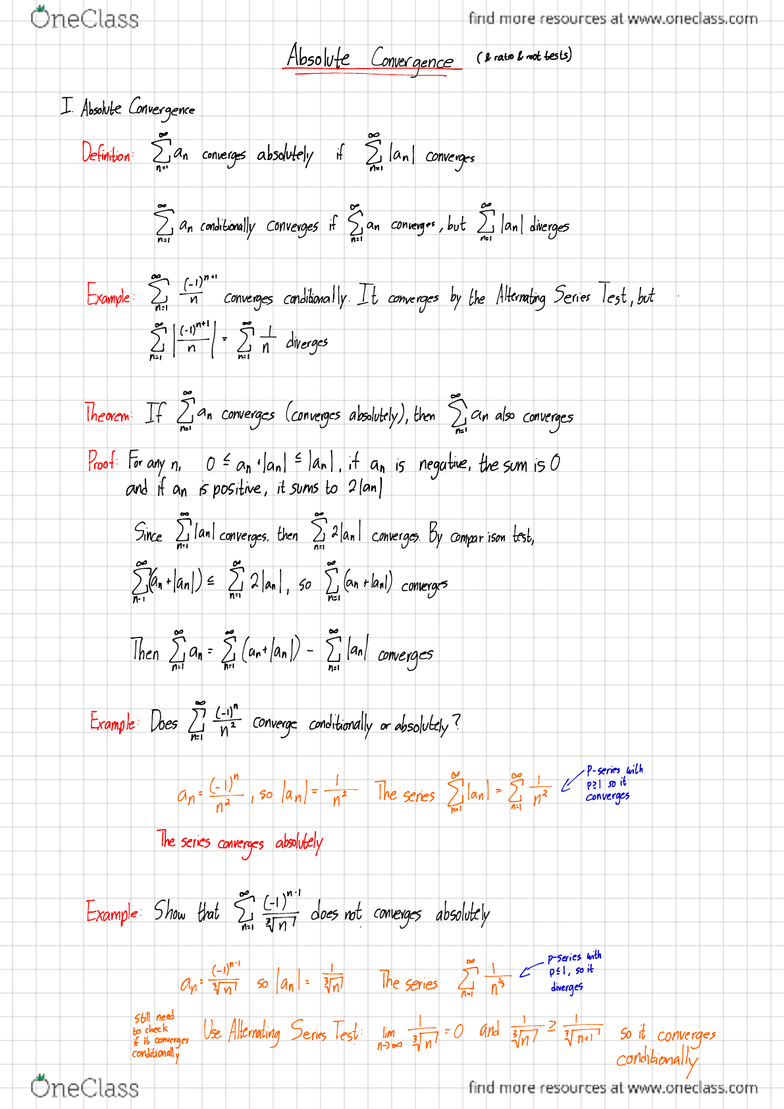 OneClass find more resources at www.oneclass.com
Absolute Convergence (& ratio & root tests)
I. Absolute Convergence
Definition: ∑_{n=1}^{∞} an converges absolutely if ∑_{n=1}^{∞} |an| converges
∑_{n=1}^{∞} an conditionally converges if ∑_{n=1}^{∞} an converges, but ∑_{n=1}^{∞} |an| diverges
Example: ∑_{n=1}^{∞} (-1)^{n+1}/n converges conditionally. It converges by the Alternating Series Test, but
∑_{n=1}^{∞} |(-1)^{n+1}/n| = ∑_{n=1}^{∞} 1/n diverges
Theorem: If ∑_{n=1}^{∞} an converges (converges absolutely), then ∑_{n=1}^{∞} an also converges
Proof: For any n, 0 ≤ an + |an| ≤ |an|, if an is negative, the sum is 0
and if an is positive, it sums to 2|an|
Since ∑_{n=1}^{∞} |an| converges, then ∑_{n=1}^{∞} 2|an| converges. By comparison test,
∑_{n=1}^{∞} (an + |an|) ≤ ∑_{n=1}^{∞} 2|an|, so ∑_{n=1}^{∞} (an + |an|) converges
Then ∑_{n=1}^{∞} an = ∑_{n=1}^{∞} (an + |an|) - ∑_{n=1}^{∞} |an| converges
Example: Does ∑_{n=1}^{∞} (-1)^n/n² converge conditionally or absolutely?
an = (-1)^n/n², so |an| = 1/n² The series ∑_{n=1}^{∞} |an| = ∑_{n=1}^{∞} 1/n²
P-series with
p≥1 so it
converges
The series converges absolutely
Example: Show that ∑_{n=1}^{∞} (-1)^{n-1}/∛n does not converges absolutely
an = (-1)^{n-1}/∛n so |an| = 1/∛n The series ∑_{n=1}^{∞} 1/n^{1/3}
p-series with
p≤1, so it
diverges
Still need
to check
if it converges
conditionally
Use Alternating Series Test: lim_{n→∞} 1/∛n = 0 and 1/∛n ≥ 1/∛(n+1) so it converges
conditionally
OneClass find more resources at www.oneclass.com